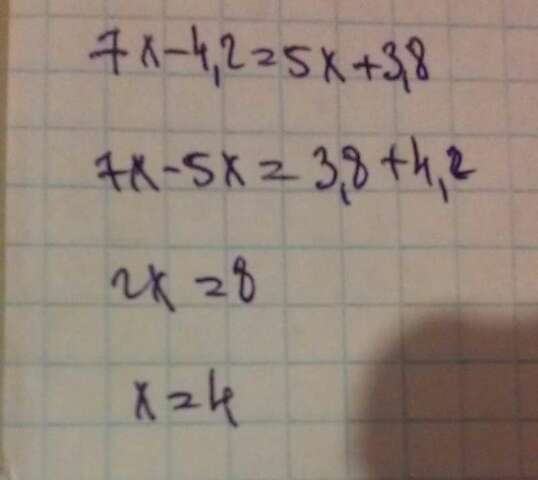 7x-4,2=5x+3,8
7x-5x=3,8+4,2
2x=8
x=4